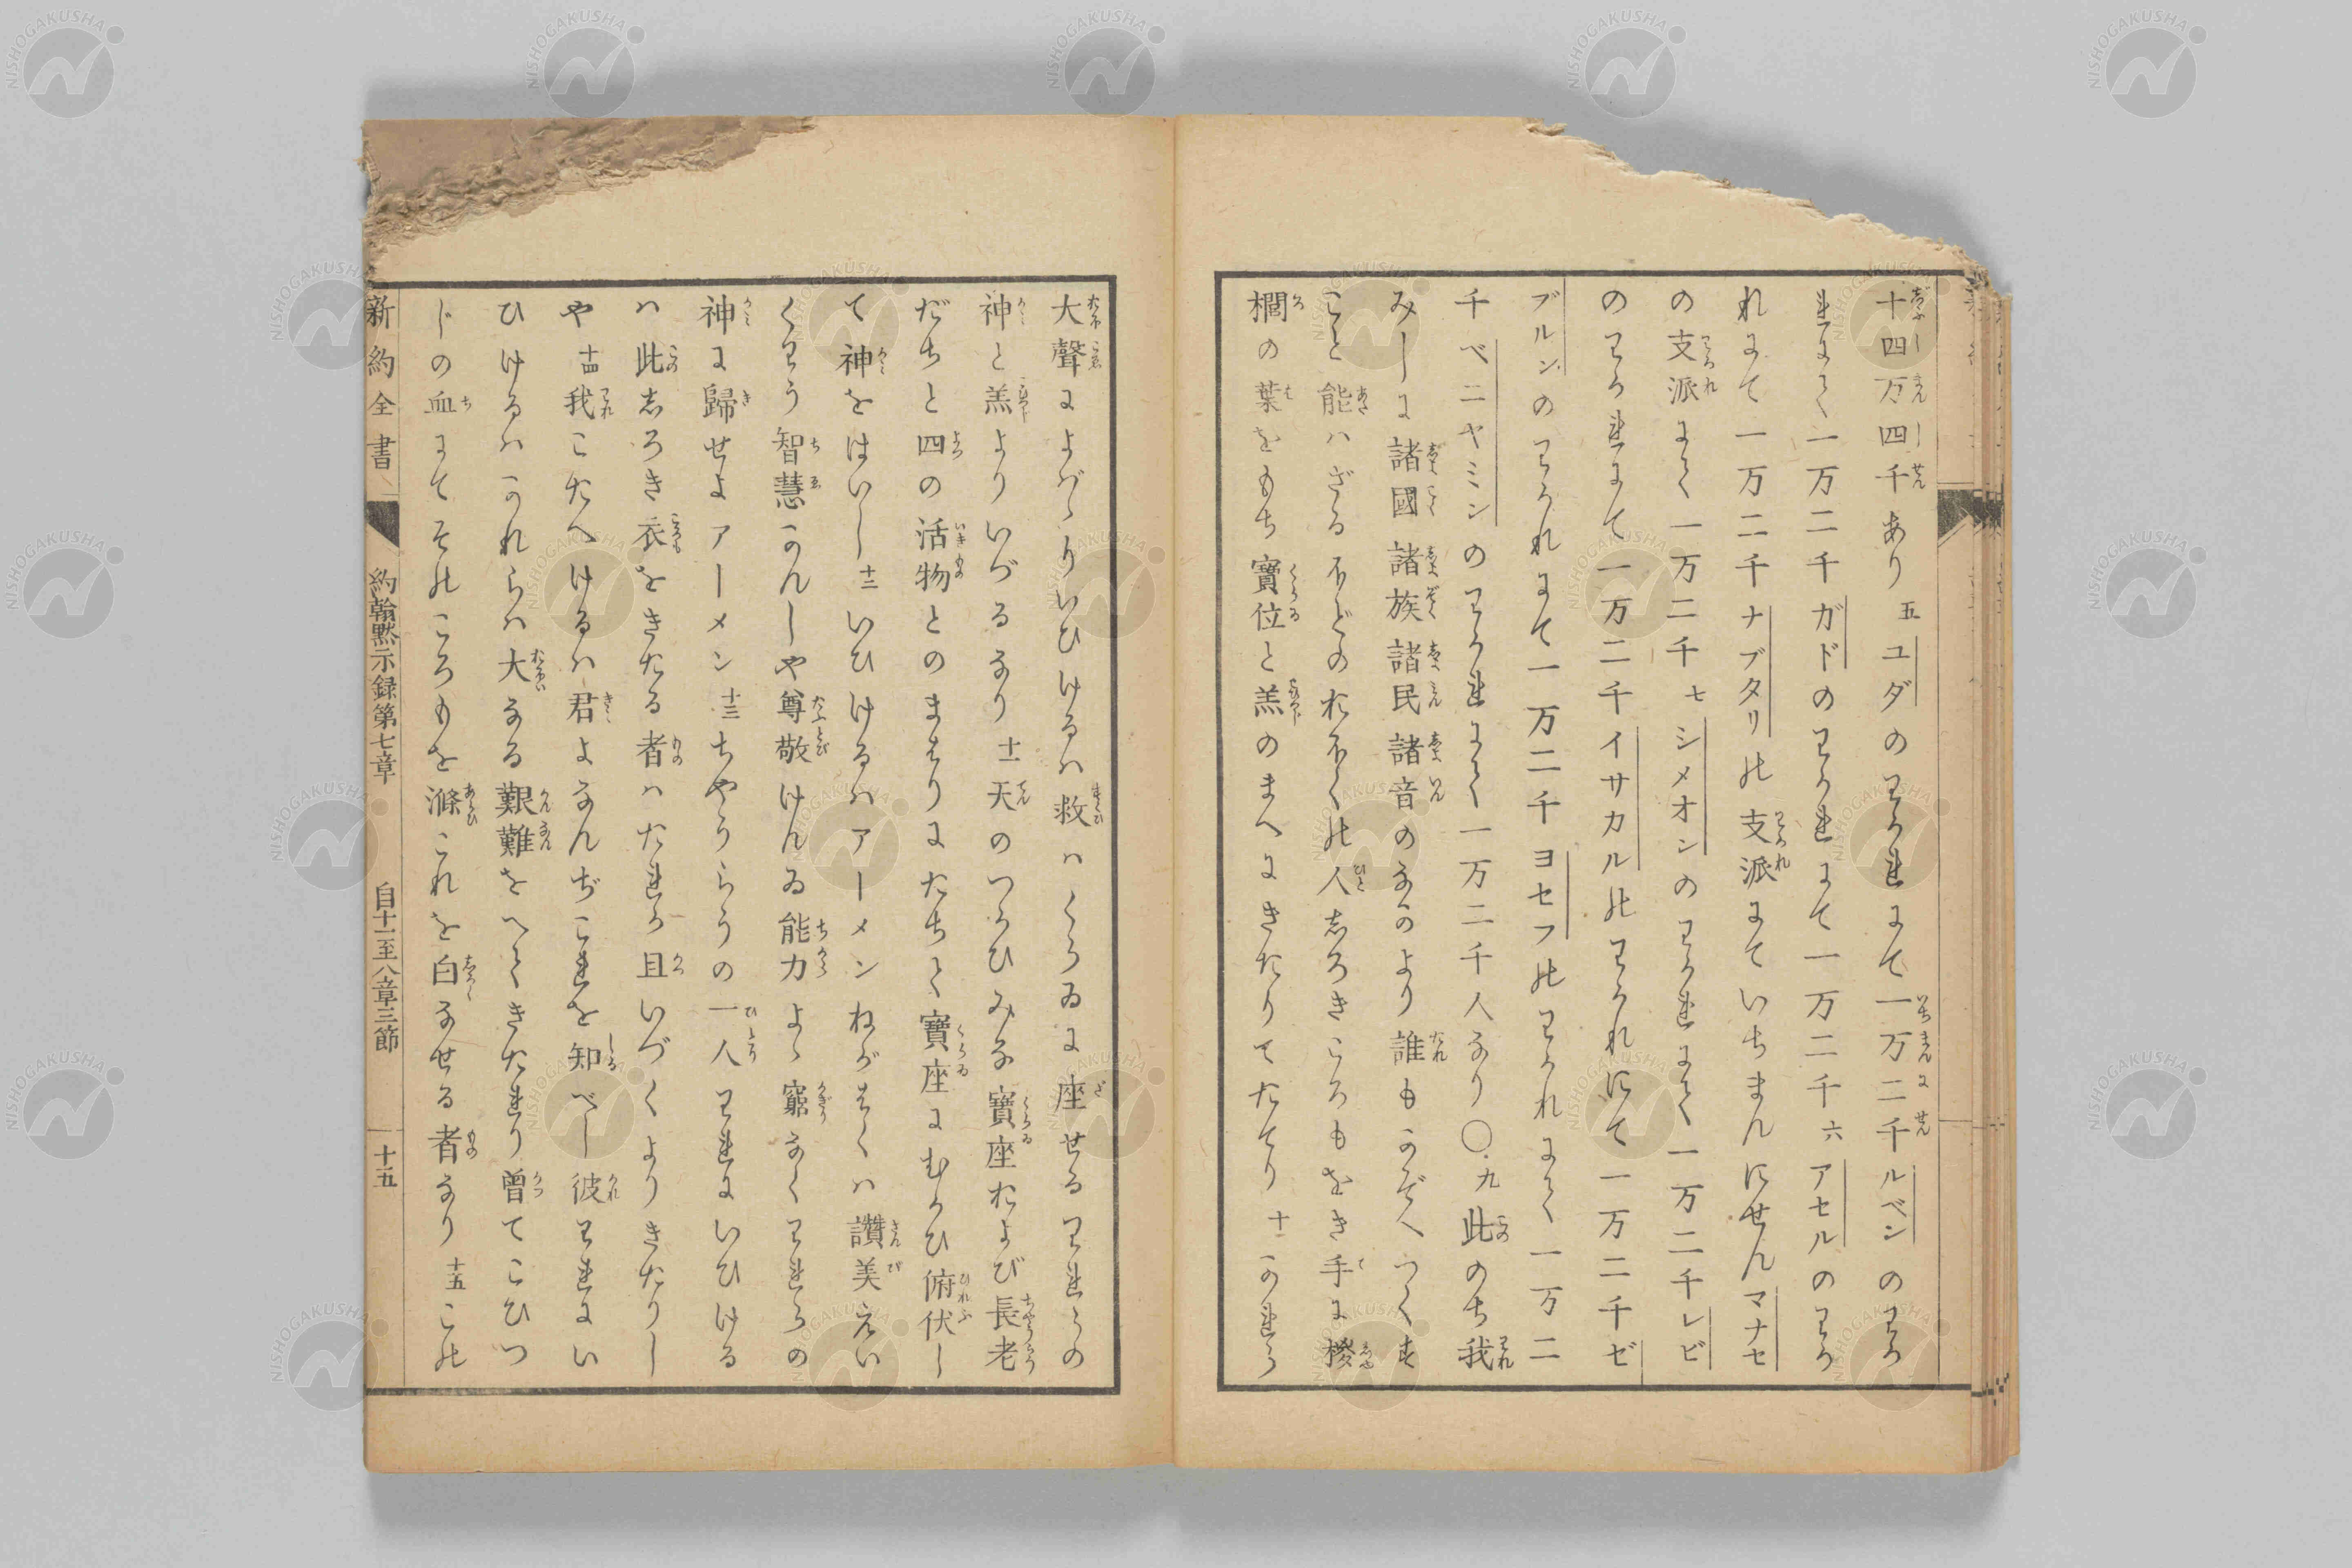 十四万四千あり 五 ユダのわかれにて一万二千ルベンのわか
れにて一万二千ガドのわかれにて一万二千 六 アセルのわか
れにて一万二千ナフタリの支派にていちまんにせんマナセ
の支派にて一万二千 七 シメオンのわかれにて一万二千レビ
のわかれにて一万二千イサカルのわかれにて一万二千ゼ
ブルンのわかれにて一万二千ヨセフのわかれにて一万二
千ベニヤミンのわかれにて一万二千人なり〇九 此のち我
みしに諸國諸族諸民諸音のなかより誰もかぞへつくす
こと能ハざるほどのおほくの人志ろきころもをき手に椶
櫚の葉をもち寳位と羔のまへにきたりてたてり 十 かれら
大聲によばゝりいひけるハ救ハくらゐに座せるわれらの
神と羔よりいづるなり 十一 天のつかひみな寳座および長老
だちと四の活物とのまはりにたちて寳座にむかひ俯伏し
て神をはいし 十二 いひけるハアーメンねがはくハ讚美えい
くわう智慧かんしや尊敬けんゐ能力よゝ窮なくわれらの
神に歸せよアーメン 十三 ちやうらうの一人われにいひける
ハ此志ろき衣をきたる者ハたれか且いづくよりきたりし
や 十四 我こたへけるハ君よなんぢこれを知べし彼われにい
ひけるハかれらハ大なる艱難をへてきたれり曾てこひつ
じの血にてそのころもを滌これを白なせる者なり 十五 この
新約全書 約翰黙示録第七章 自十一至八章三節 十五